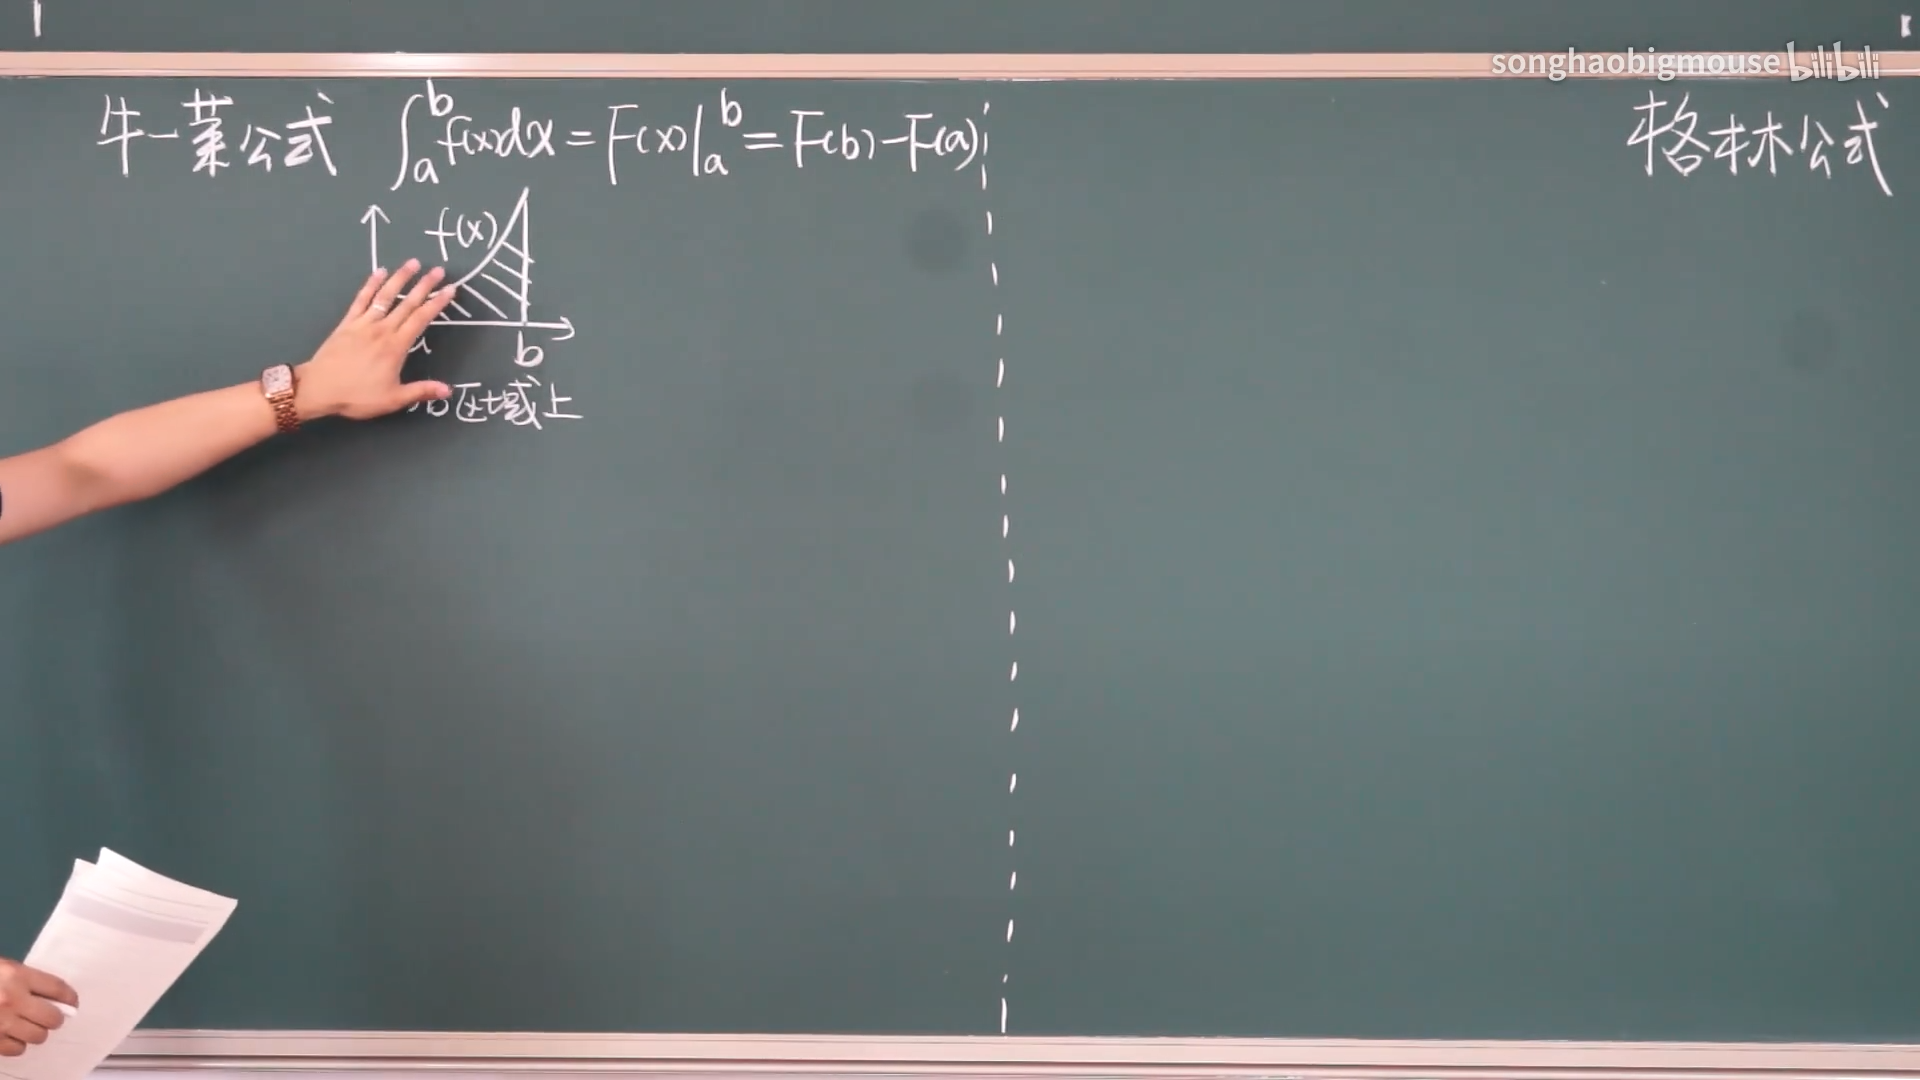 songhaobigmouse bilibili
牛-莱公式 ∫_a^b f(x)dx = F(x)|_a^b = F(b)-F(a)
格林公式
f(x)
a b
区域上